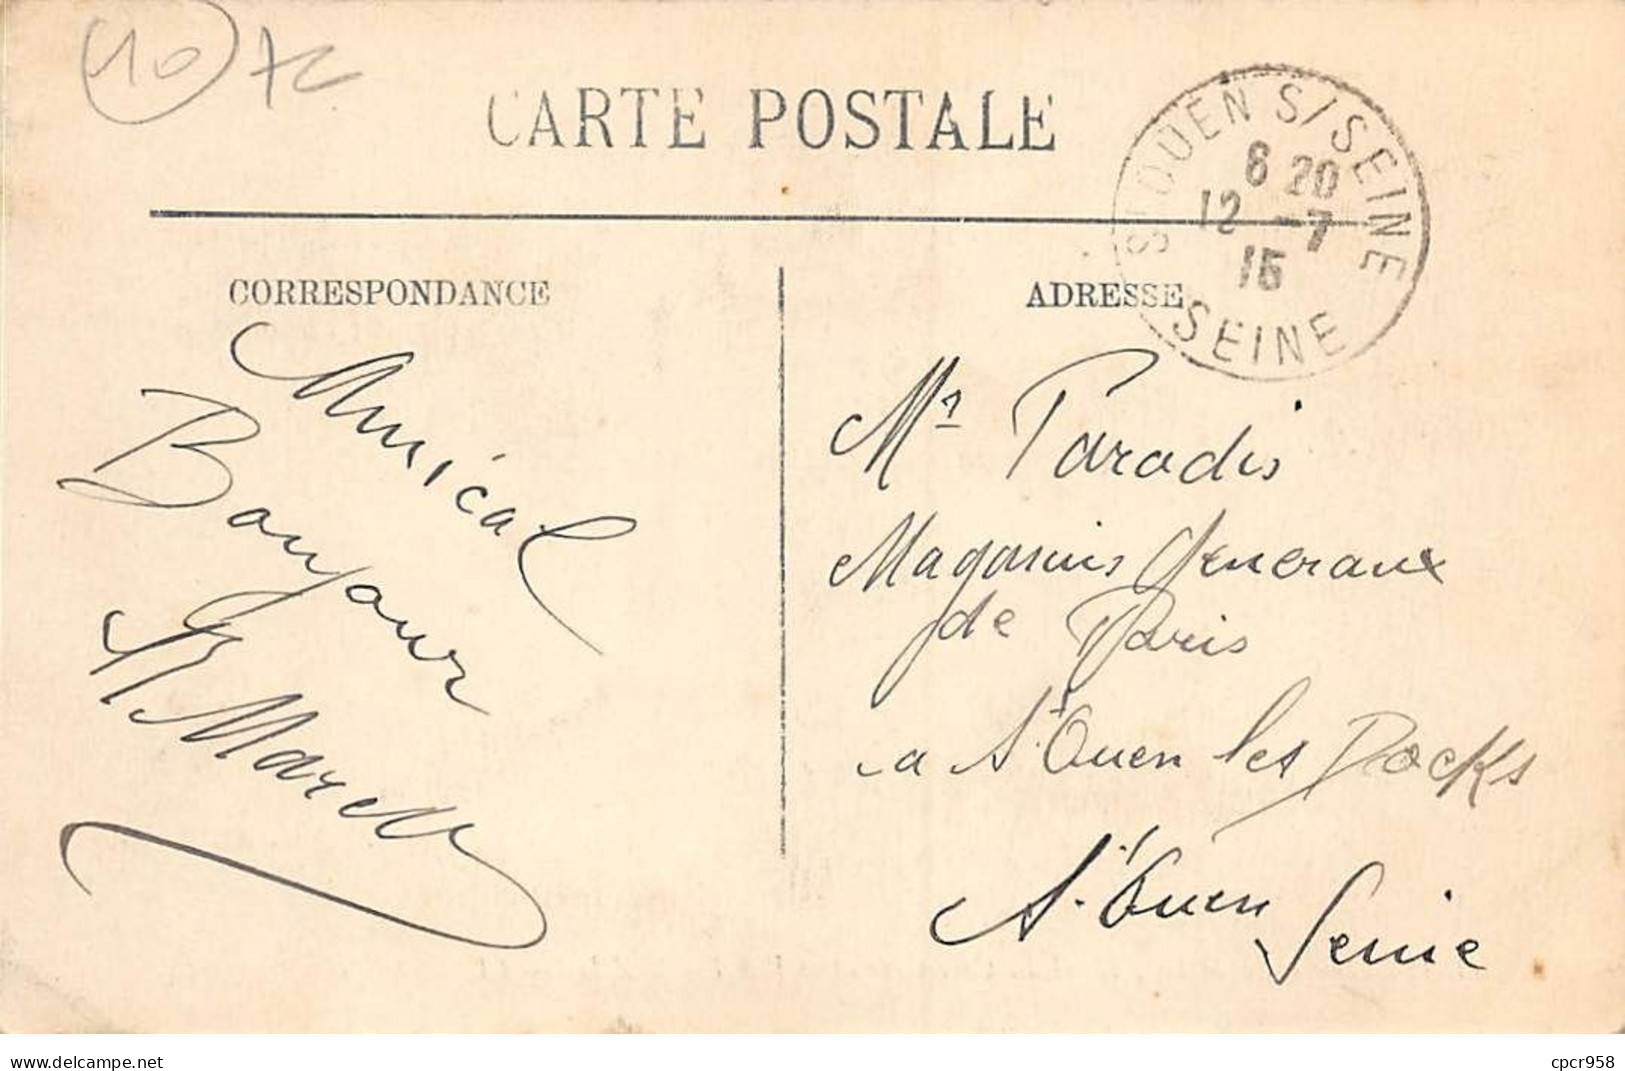 10
CARTE POSTALE
ST OUEN S/SEINE
6 20
12 -7
15
SEINE
CORRESPONDANCE
ADRESSE
Amical
Bonjour
Mr Paradis
Magasins Generaux
de Paris
a St Ouen les Docks
St Ouen
Seine
cpcr958